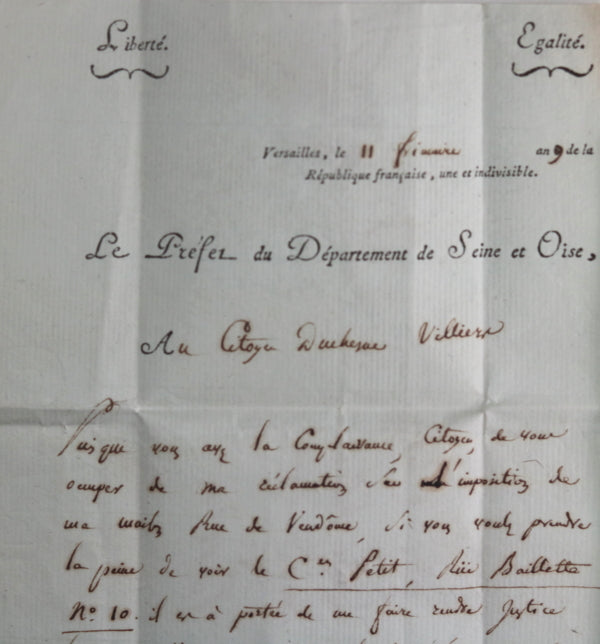 Liberté. Egalité.
Versailles, le 11 frimaire an 9 de la
République française, une et indivisible.
Le Préfet du Département de Seine et Oise,
Au Citoyen Duchesne Villiers
Puisque vous avez la Complaisance, Citoyen, de vous
occuper de ma réclamation sur l'imposition de
ma maison Rue de Vendôme, Si vous voulez prendre
la peine de voir le Cen Petit, Rüe Baillette
No. 10. il est à portée de me faire rendre Justice